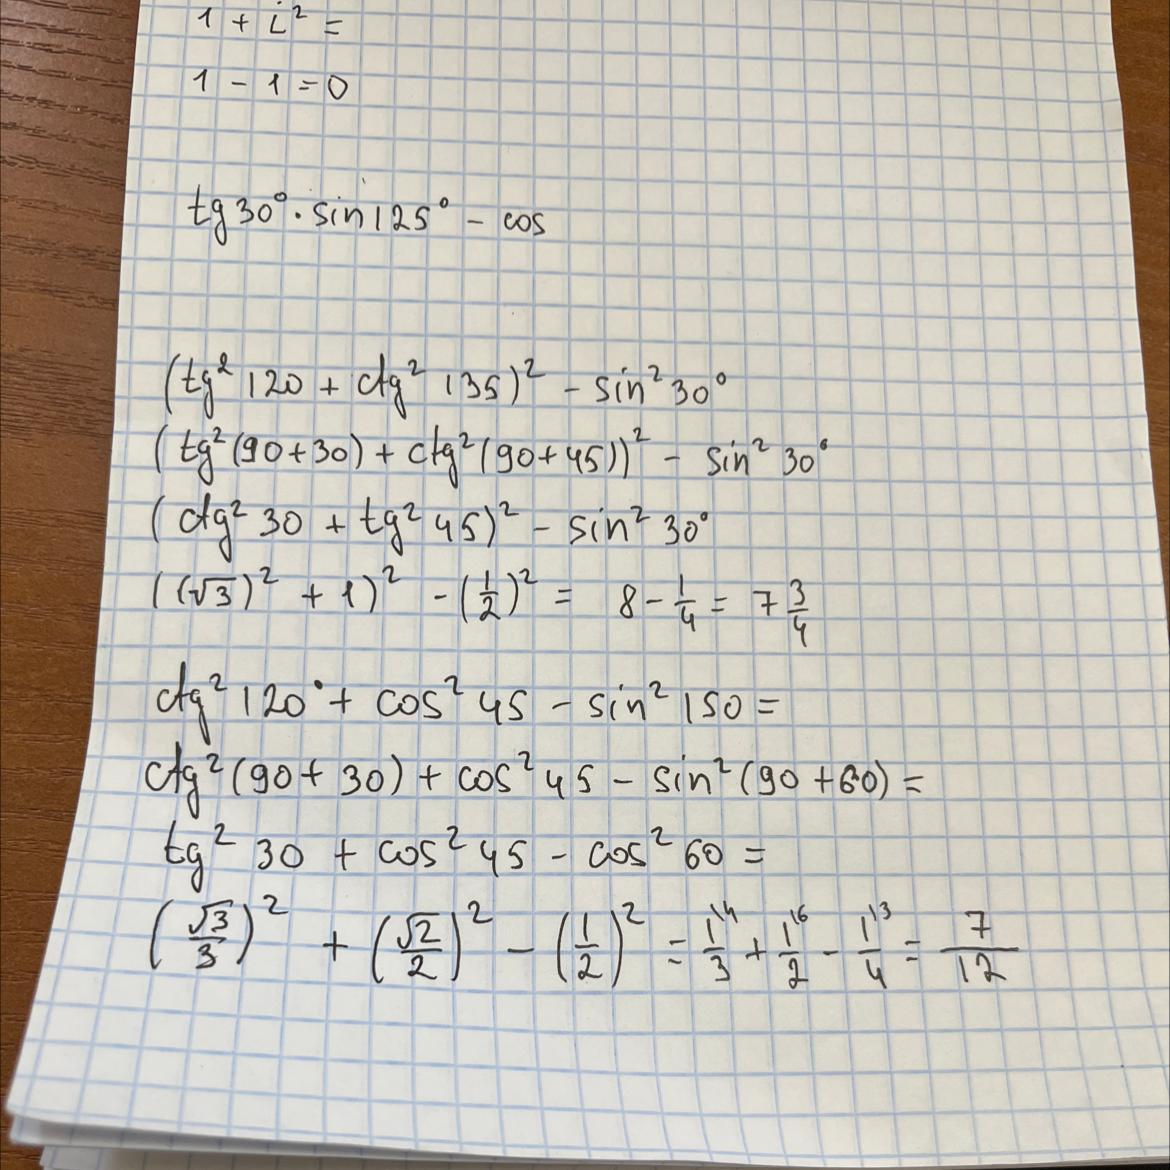 1 + i² =
1 - 1 = 0
tg 30° · sin 125° - cos
(tg² 120 + ctg² 135)² - sin² 30°
(tg² (90+30) + ctg² (90+45))² - sin² 30°
(ctg² 30 + tg² 45)² - sin² 30°
((√3)² + 1)² - (1/2)² = 8 - 1/4 = 7 3/4
ctg² 120° + cos² 45 - sin² 150 =
ctg² (90+30) + cos² 45 - sin² (90+60) =
tg² 30 + cos² 45 - cos² 60 =
(√3/3)² + (√2/2)² - (1/2)² = 1/3 \4 + 1/2 \6 - 1/4 \3 = 7/12